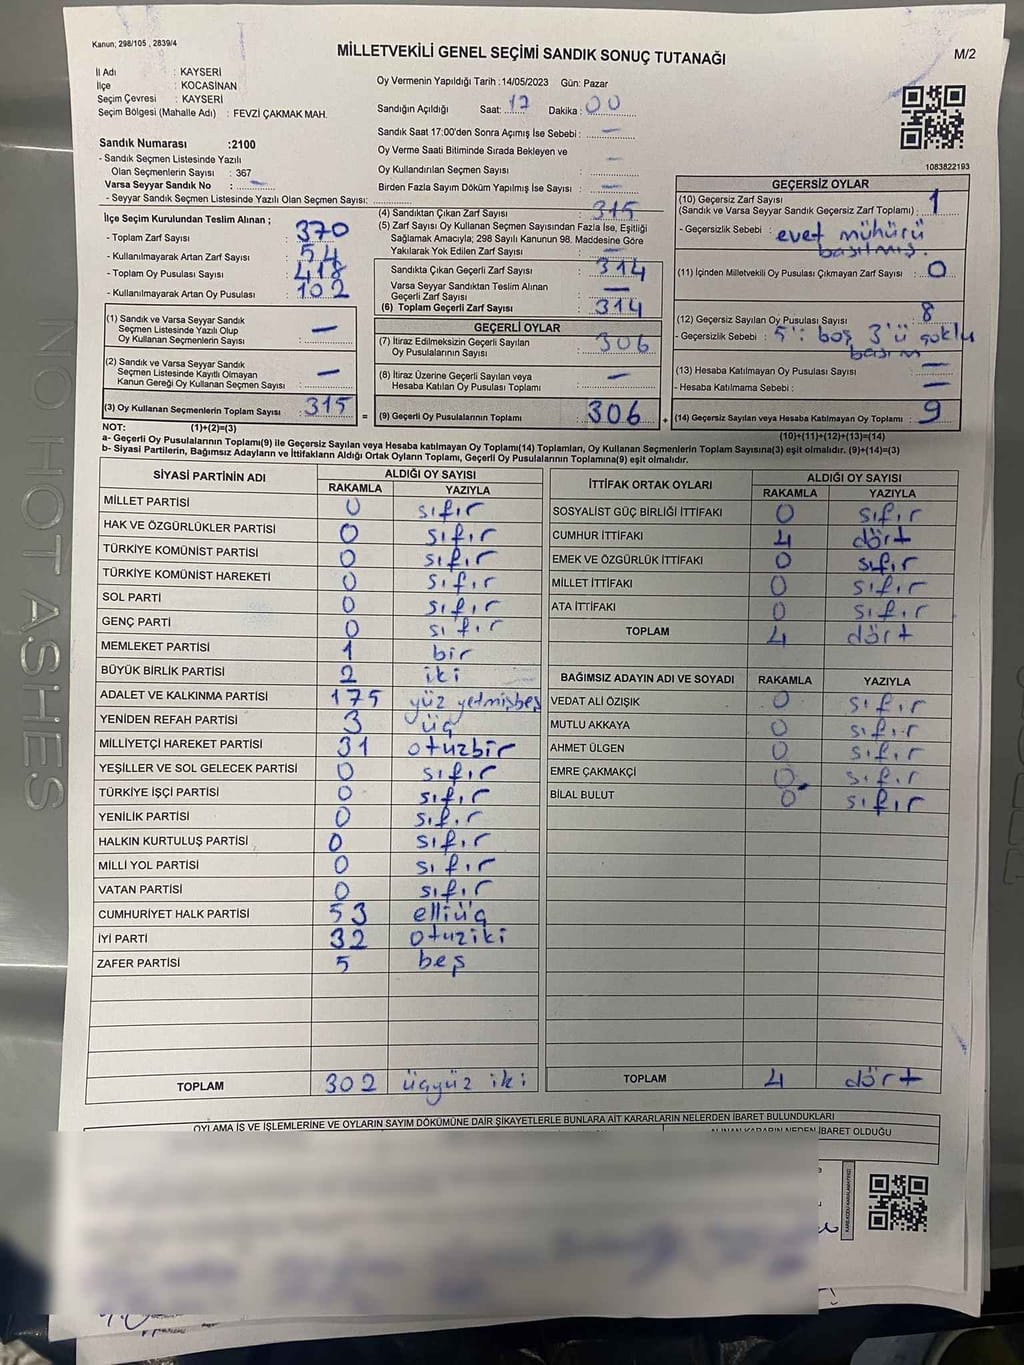 Kanun; 298/105 , 2839/4
MİLLETVEKİLİ GENEL SEÇİMİ SANDIK SONUÇ TUTANAĞI
M/2
İl Adı : KAYSERİ
İlçe : KOCASİNAN
Seçim Çevresi : KAYSERİ
Seçim Bölgesi (Mahalle Adı) : FEVZİ ÇAKMAK MAH.
Sandık Numarası :2100
- Sandık Seçmen Listesinde Yazılı
Olan Seçmenlerin Sayısı : 367
Varsa Seyyar Sandık No : —
- Seyyar Sandık Seçmen Listesinde Yazılı Olan Seçmen Sayısı:
Oy Vermenin Yapıldığı Tarih : 14/05/2023 Gün: Pazar
Sandığın Açıldığı Saat: 17 Dakika : 00
Sandık Saat 17:00'den Sonra Açımış İse Sebebi : —
Oy Verme Saati Bitiminde Sırada Bekleyen ve
Oy Kullandırılan Seçmen Sayısı —
Birden Fazla Sayım Döküm Yapılmış İse Sayısı : —
1083822193
İlçe Seçim Kurulundan Teslim Alınan ;
- Toplam Zarf Sayısı : 370
- Kullanılmayarak Artan Zarf Sayısı : 54
- Toplam Oy Pusulası Sayısı : 418
- Kullanılmayarak Artan Oy Pusulası : 102
(1) Sandık ve Varsa Seyyar Sandık
Seçmen Listesinde Yazılı Olup
Oy Kullanan Seçmenlerin Sayısı : —
(2) Sandık ve Varsa Seyyar Sandık
Seçmen Listesinde Kayıtlı Olmayan
Kanun Gereği Oy Kullanan Seçmen Sayısı : —
(3) Oy Kullanan Seçmenlerin Toplam Sayısı : 315 =
(4) Sandıktan Çıkan Zarf Sayısı : 315
(5) Zarf Sayısı Oy Kullanan Seçmen Sayısından Fazla İse, Eşitliği
Sağlamak Amacıyla; 298 Sayılı Kanunun 98. Maddesine Göre
Yakılarak Yok Edilen Zarf Sayısı : —
Sandıkta Çıkan Geçerli Zarf Sayısı : 314
Varsa Seyyar Sandıktan Teslim Alınan
Geçerli Zarf Sayısı : —
(6) Toplam Geçerli Zarf Sayısı : 314
GEÇERLİ OYLAR
(7) İtiraz Edilmeksizin Geçerli Sayılan
Oy Pusulalarının Sayısı : 306
(8) İtiraz Üzerine Geçerli Sayılan veya
Hesaba Katılan Oy Pusulası Toplamı : —
(9) Geçerli Oy Pusulalarının Toplamı : 306 +
GEÇERSİZ OYLAR
(10) Geçersiz Zarf Sayısı
(Sandık ve Varsa Seyyar Sandık Geçersiz Zarf Toplamı) : 1
- Geçersizlik Sebebi : evet mühürü
basılmış.
(11) İçinden Milletvekili Oy Pusulası Çıkmayan Zarf Sayısı : 0
(12) Geçersiz Sayılan Oy Pusulası Sayısı : 8
- Geçersizlik Sebebi : 5': boş 3'ü çoklu
basım
(13) Hesaba Katılmayan Oy Pusulası Sayısı : —
- Hesaba Katılmama Sebebi : —
(14) Geçersiz Sayılan veya Hesaba Katılmayan Oy Toplamı : 9
NOT: (1)+(2)=(3)
(10)+(11)+(12)+(13)=(14)
a- Geçerli Oy Pusulalarının Toplamı(9) ile Geçersiz Sayılan veya Hesaba katılmayan Oy Toplamı(14) Toplamları, Oy Kullanan Seçmenlerin Toplam Sayısına(3) eşit olmalıdır. (9)+(14)=(3)
b- Siyasi Partilerin, Bağımsız Adayların ve İttifakların Aldığı Ortak Oyların Toplamı, Geçerli Oy Pusulalarının Toplamına(9) eşit olmalıdır.
SİYASİ PARTİNİN ADI ALDIĞI OY SAYISI
RAKAMLA YAZIYLA
MİLLET PARTİSİ 0 sıfır
HAK VE ÖZGÜRLÜKLER PARTİSİ 0 sıfır
TÜRKİYE KOMÜNİST PARTİSİ 0 sıfır
TÜRKİYE KOMÜNİST HAREKETİ 0 sıfır
SOL PARTİ 0 sıfır
GENÇ PARTİ 0 sıfır
MEMLEKET PARTİSİ 1 bir
BÜYÜK BİRLİK PARTİSİ 2 iki
ADALET VE KALKINMA PARTİSİ 175 yüz yetmişbeş
YENİDEN REFAH PARTİSİ 3 üç
MİLLİYETÇİ HAREKET PARTİSİ 31 otuzbir
YEŞİLLER VE SOL GELECEK PARTİSİ 0 sıfır
TÜRKİYE İŞÇİ PARTİSİ 0 sıfır
YENİLİK PARTİSİ 0 sıfır
HALKIN KURTULUŞ PARTİSİ 0 sıfır
MİLLİ YOL PARTİSİ 0 sıfır
VATAN PARTİSİ 0 sıfır
CUMHURİYET HALK PARTİSİ 53 elliüç
İYİ PARTİ 32 otuziki
ZAFER PARTİSİ 5 beş
TOPLAM 302 üçyüz iki
İTTİFAK ORTAK OYLARI ALDIĞI OY SAYISI
RAKAMLA YAZIYLA
SOSYALİST GÜÇ BİRLİĞİ İTTİFAKI 0 sıfır
CUMHUR İTTİFAKI 4 dört
EMEK VE ÖZGÜRLÜK İTTİFAKI 0 sıfır
MİLLET İTTİFAKI 0 sıfır
ATA İTTİFAKI 0 sıfır
TOPLAM 4 dört
BAĞIMSIZ ADAYIN ADI VE SOYADI RAKAMLA YAZIYLA
VEDAT ALİ ÖZIŞIK 0 sıfır
MUTLU AKKAYA 0 sıfır
AHMET ÜLGEN 0 sıfır
EMRE ÇAKMAKÇİ 0 sıfır
BİLAL BULUT 0 sıfır
TOPLAM 4 dört
OYLAMA İŞ VE İŞLEMLERİNE VE OYLARIN SAYIM DÖKÜMÜNE DAİR ŞİKAYETLERLE BUNLARA AİT KARARLARIN NELERDEN İBARET BULUNDUKLARI
ALINAN KARARIN NEDEN İBARET OLDUĞU
NO HOT ASHES